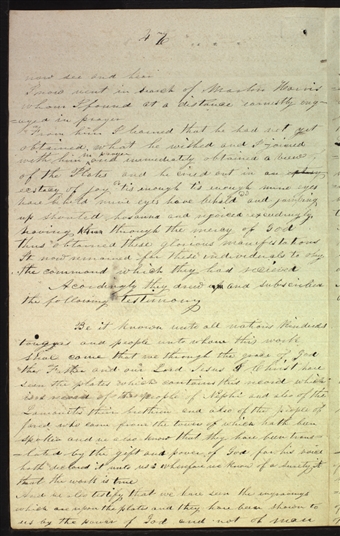 47
now see and hear
I now went in search of Martin Harris
whom I found at a distance earnestly eng-
-aged in prayer
From him I learned that he had not yet
obtained what he wished and I joined
with him in prayer and immediately obtained a view
of the Plates and he cried out in an
ecstacy of joy "tis enough tis enough mine eyes
have beheld mine eyes have beheld" and jumping
up shouted hosanna and rejoiced exceedingly
having through the mercy of God
thus obtained these glorious manifestations
It now remained for these individuals to obey
the command which they had received
Acordingly they drew up and subscribed
the following Testimony
Be it known unto all nations Kindreds
tongues and people unto whom this work
shall come that we through the grace of God
the Father and our Lord Jesus Christ have
seen the plates which contain this record which
is a record of the people of Nephi and also of the
Lamanites their brethren and also of the people of
Jared who came from the tower of which hath been
spoken and we also know that they have been trans-
-lated by the gift and power of God for his voice
hath declared it unto us wherefore we know of a surety
that the work is true
And we also testify that we have seen the engravings
which are upon the plates and they have been shown to
us by the power of God and not of man